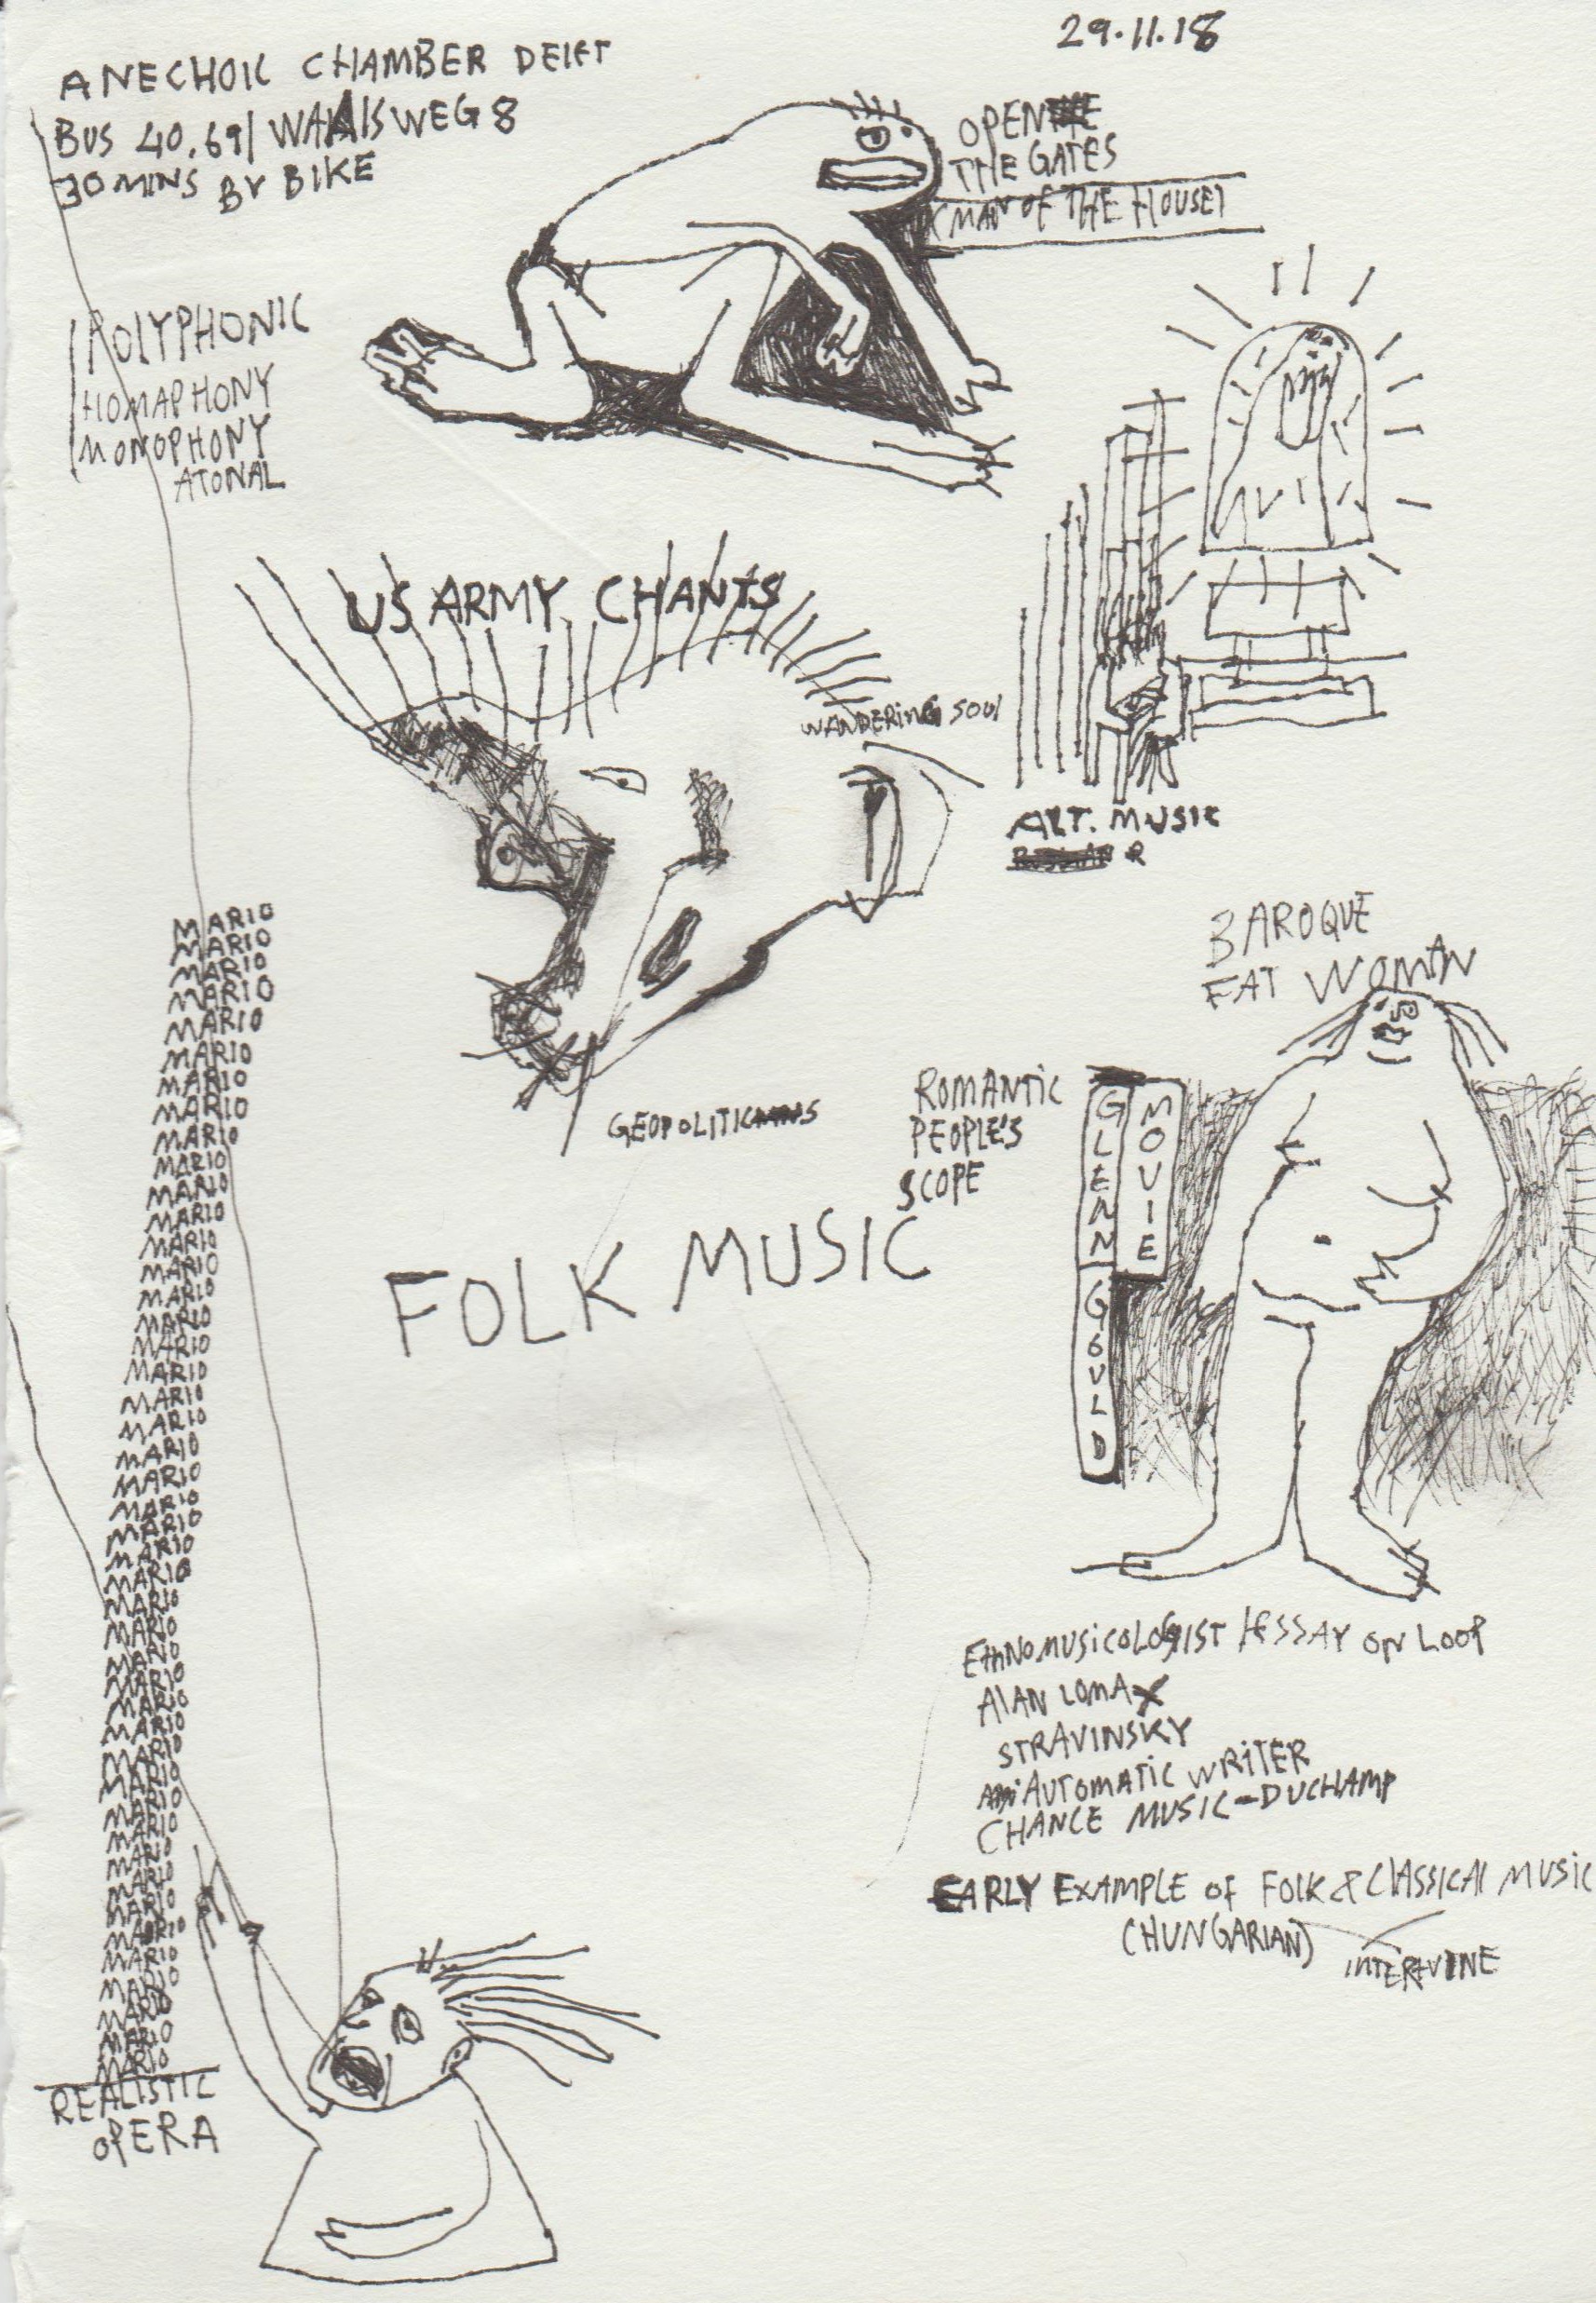 29.11.18
ANECHOIC CHAMBER DELFT
BUS 40.69/ WAALSWEG 8
30 MINS BY BIKE
OPEN
THE GATES
(MAN OF THE HOUSE)
POLYPHONIC
HOMAPHONY
MONOPHONY
ATONAL
US ARMY CHANTS
WANDERING SOUL
ART. MUSIC
BAROQUE
FAT WOMAN
GEOPOLITIC
ROMANTIC
PEOPLE'S
SCOPE
GLENN GOULD
MOVIE
FOLK MUSIC
MARIO
MARIO
MARIO
MARIO
MARIO
MARIO
MARIO
MARIO
MARIO
MARIO
MARIO
MARIO
MARIO
MARIO
MARIO
MARIO
MARIO
MARIO
MARIO
MARIO
MARIO
MARIO
MARIO
MARIO
MARIO
MARIO
MARIO
MARIO
MARIO
MARIO
MARIO
MARIO
MARIO
MARIO
MARIO
MARIO
MARIO
MARIO
MARIO
MARIO
MARIO
MARIO
MARIO
MARIO
REALISTIC
OPERA
ETHNOMUSICOLOGIST / ESSAY ON LOOP
ALAN LOMAX
STRAVINSKY
AUTOMATIC WRITER
CHANCE MUSIC-DUCHAMP
EARLY EXAMPLE OF FOLK & CLASSICAL MUSIC
(HUNGARIAN)
INTERTVINE